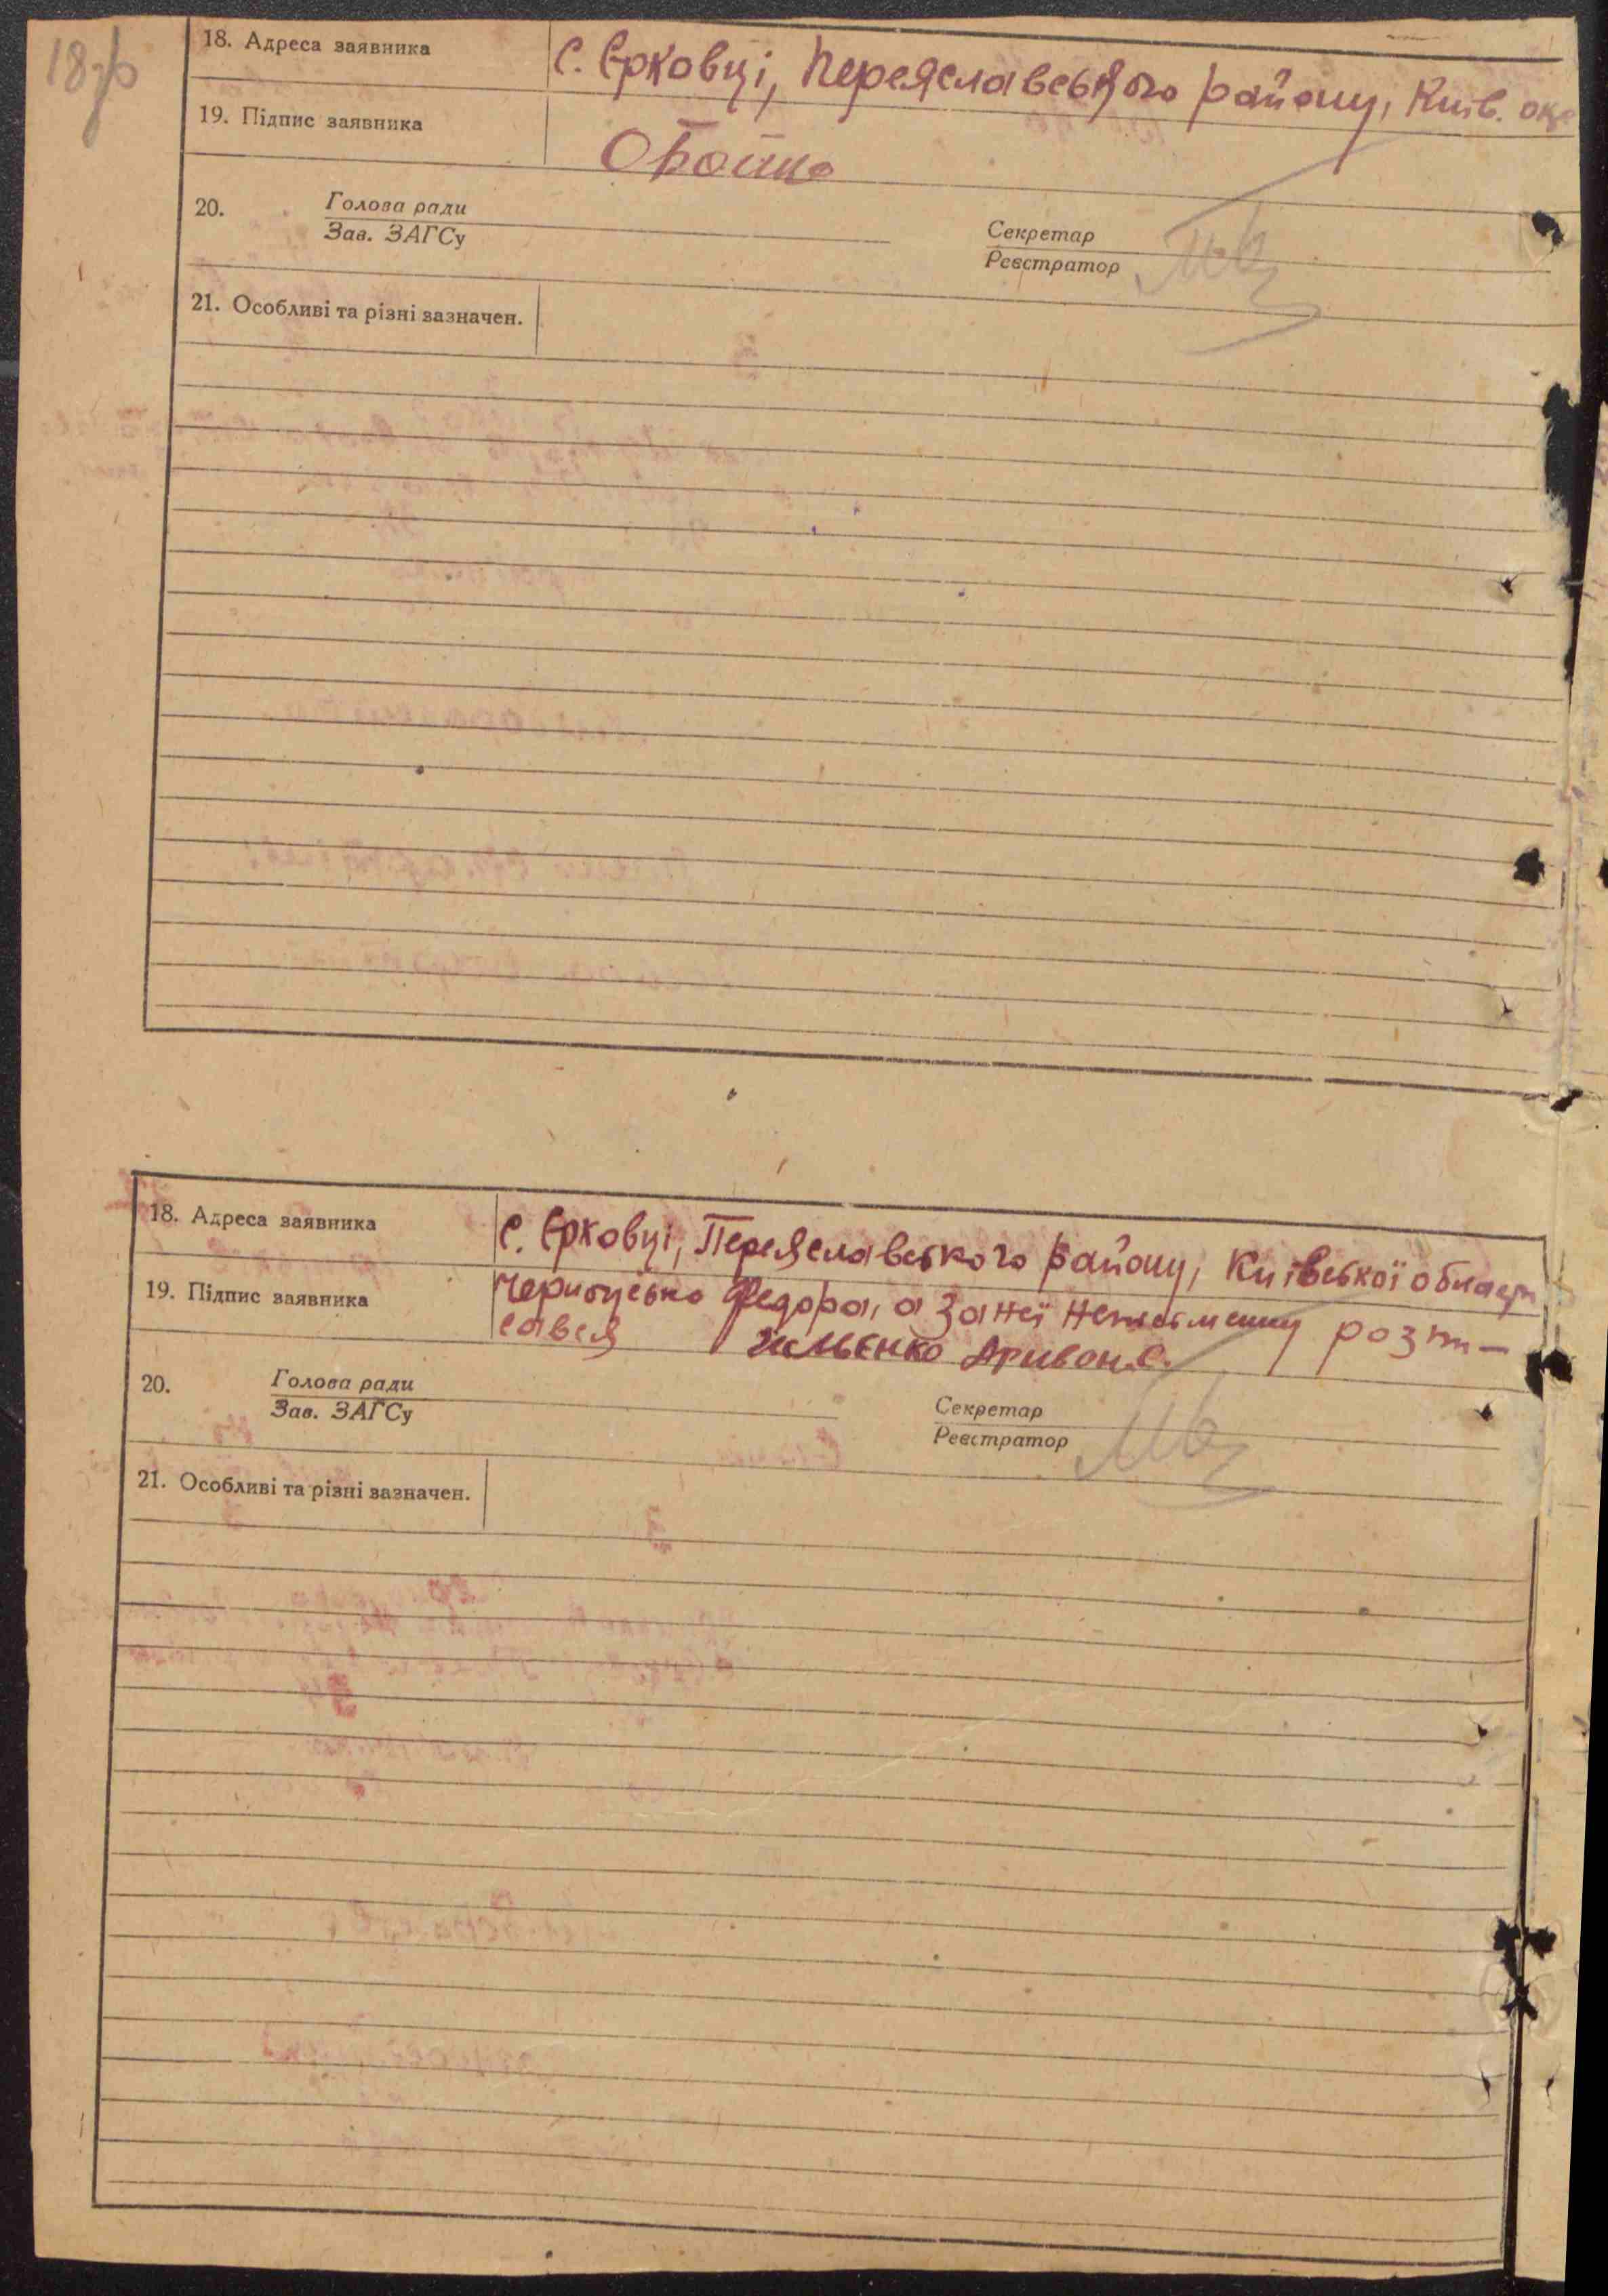 18зв
18. Адреса заявника С. Єрковці, Переяславського району, Київ.
19. Підпис заявника ОБойко
20. Голова ради
Зав. ЗАГСу
Секретар
Реєстратор
21. Особливі та різні зазначен.
18. Адреса заявника С. Єрковці, Переяславського району, Київської област
19. Підпис заявника Федора, а за неї неписьменну розпи-
савсь Ільєнко
20. Голова ради
Зав. ЗАГСу
Секретар
Реєстратор
21. Особливі та різні зазначен.